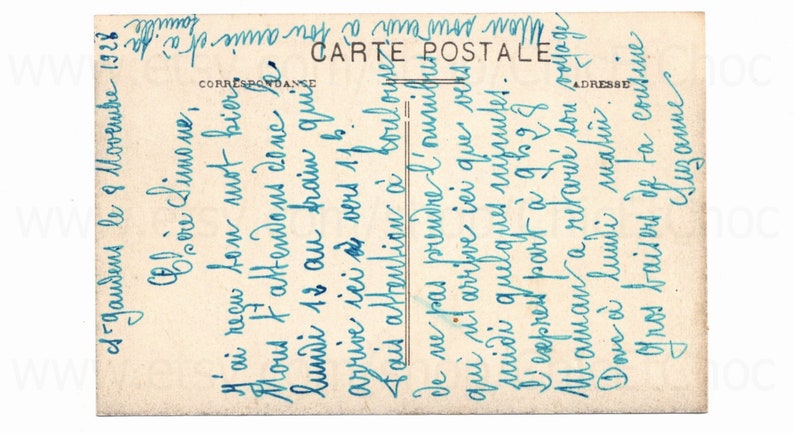 CARTE POSTALE
CORRESPONDANCE
ADRESSE
St gaudens le 8 Novembre 1928
Chère Simone,
J'ai reçu ton mot hier
Nous t'attendons donc le
lundi 12 au train qui
arrive ici vers 11 h.
Fais attention à Toulouse
de ne pas prendre l'omnibus
qui n'arrive ici que vers
midi quelques minutes
L'express part à 9 h 28
Maman a retardé son voyage
Donc à lundi matin.
Gros baisers de ta cousine
Suzanne
Mon souvenir à ton amie et à sa
famille
www.etsy.com